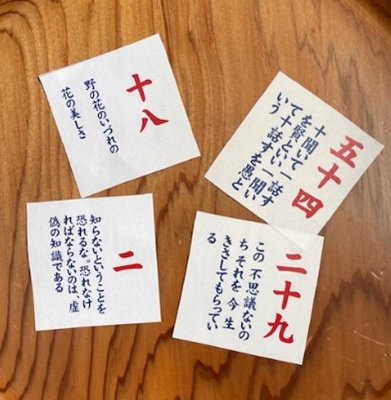 十八
野の花のいづれの
花の美しさ
五十四
十聞いて一話す
を賢といい一聞い
て十話すを愚と
いう
二
知らないということを
恐れるな。恐れなけ
ればならないのは、虚
偽の知識である
二十九
この 不思議ないの
ち それを 今 生
きさしてもらってい
る